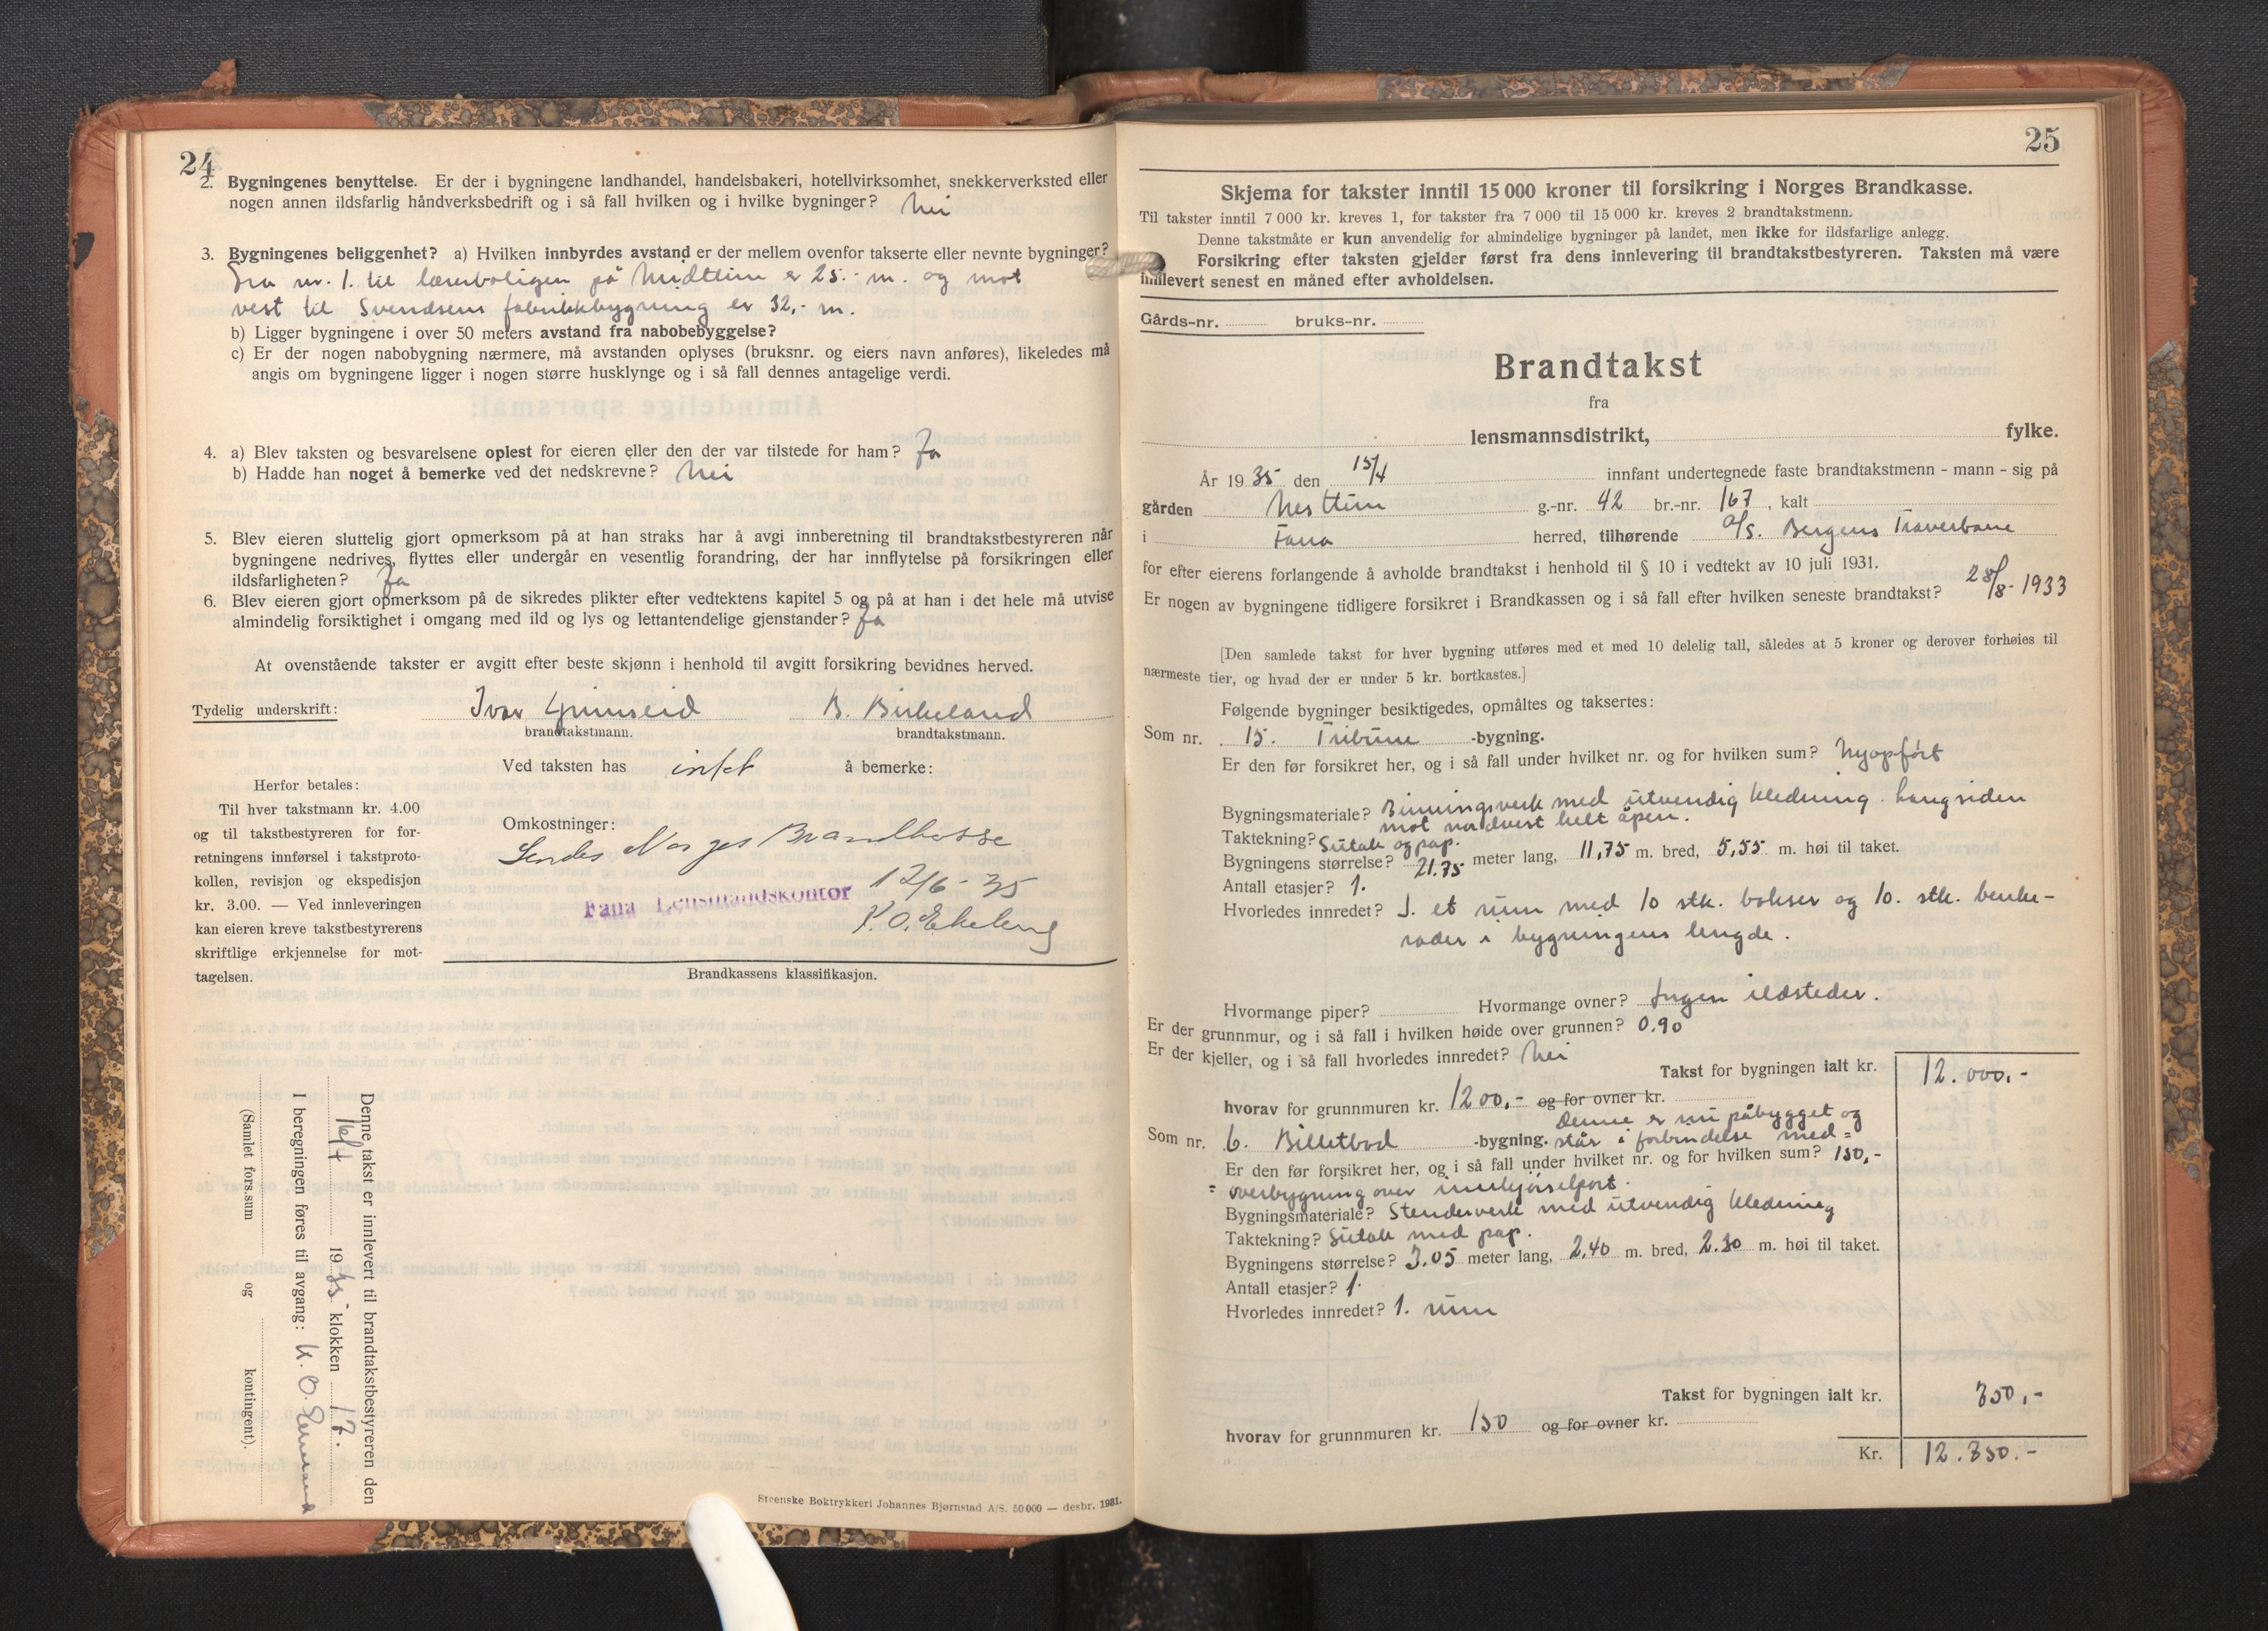 24
2. Bygningenes benyttelse. Er der i bygningene landhandel, handelsbakeri, hotellvirksomhet, snekkerverksted eller
nogen annen ildsfarlig håndverksbedrift og i så fall hvilken og i hvilke bygninger? Nei
3. Bygningenes beliggenhet? a) Hvilken innbyrdes avstand er der mellem ovenfor takserte eller nevnte bygninger?
Fra nr. 1. til lærerboligen på Midttun er 25.- m. og mot
vest til Svendsens fabrikkbygning er 32,- m.
b) Ligger bygningene i over 50 meters avstand fra nabobebyggelse?
c) Er der nogen nabobygning nærmere, må avstanden oplyses (bruksnr. og eiers navn anføres), likeledes må
angis om bygningene ligger i nogen større husklynge og i så fall dennes antagelige verdi.
4. a) Blev taksten og besvarelsene oplest for eieren eller den der var tilstede for ham? Ja
b) Hadde han noget å bemerke ved det nedskrevne? Nei
5. Blev eieren sluttelig gjort opmerksom på at han straks har å avgi innberetning til brandtakstbestyreren når
bygningene nedrives, flyttes eller undergår en vesentlig forandring, der har innflytelse på forsikringen eller
ildsfarligheten? Ja
6. Blev eieren gjort opmerksom på de sikredes plikter efter vedtektens kapitel 5 og på at han i det hele må utvise
almindelig forsiktighet i omgang med ild og lys og lettantendelige gjenstander? Ja
At ovenstående takster er avgitt efter beste skjønn i henhold til avgitt forsikring bevidnes herved.
Tydelig underskrift: Ivar Grimseid B. Birkeland
brandtakstmann. brandtakstmann.
Ved taksten has intet å bemerke:
Herfor betales:
Til hver takstmann kr. 4.00
og til takstbestyreren for for-
retningens innførsel i takstproto-
kollen, revisjon og ekspedisjon
kr. 3.00. — Ved innleveringen
kan eieren kreve takstbestyrerens
skriftlige erkjennelse for mot-
tagelsen.
Omkostninger:
Sendes Norges Brandkasse
Fana Lensmandskontor 12/6 - 35
Brandkassens klassifikasjon.
Denne takst er innlevert til brandtakstbestyreren den
16/4 1935 klokken 17.
I beregningen føres til avgang:
(Samlet fors.sum og kontingent).
Steenske Boktrykkeri Johannes Bjørnstad A/S. 50 000 — desbr. 1931.
25
Skjema for takster inntil 15 000 kroner til forsikring i Norges Brandkasse.
Til takster inntil 7 000 kr. kreves 1, for takster fra 7 000 til 15 000 kr. kreves 2 brandtakstmenn.
Denne takstmåte er kun anvendelig for almindelige bygninger på landet, men ikke for ildsfarlige anlegg.
Forsikring efter taksten gjelder først fra dens innlevering til brandtakstbestyreren. Taksten må være
innlevert senest en måned efter avholdelsen.
Gårds-nr. bruks-nr.
Brandtakst
fra
lensmannsdistrikt, fylke.
År 1935 den 15/4 innfant undertegnede faste brandtakstmenn - mann - sig på
gården Nesttun g.-nr. 42 br.-nr. 167, kalt
i Fana herred, tilhørende A/S. Bergens Traverbane
for efter eierens forlangende å avholde brandtakst i henhold til § 10 i vedtekt av 10 juli 1931.
Er nogen av bygningene tidligere forsikret i Brandkassen og i så fall efter hvilken seneste brandtakst? 28/8- 1933
[Den samlede takst for hver bygning utføres med et med 10 delelig tall, således at 5 kroner og derover forhøies til
nærmeste tier, og hvad der er under 5 kr. bortkastes.]
Følgende bygninger besiktigedes, opmåltes og taksertes:
Som nr. 15. Tribune -bygning.
Er den før forsikret her, og i så fall under hvilket nr. og for hvilken sum? Nyopfört
Bygningsmateriale? Binningsverk med utvendig kledning. Langsiden
mot nordvest helt åpen.
Taktekning? Sutak og pap.
Bygningens størrelse? 21.75 meter lang, 11,75 m. bred, 5,55 m. høi til taket.
Antall etasjer? 1.
Hvorledes innredet? I. et rum med 10 stk. bokser og 10. stk. benke-
rader i bygningens lengde.
Hvormange piper? Hvormange ovner? Ingen ildsteder.
Er der grunnmur, og i så fall i hvilken høide over grunnen? 0.90
Er der kjeller, og i så fall hvorledes innredet? Nei
Takst for bygningen ialt kr. 12.000,-
hvorav for grunnmuren kr. 1200,- og for ovner kr.
Som nr. 6. Billetbod -bygning. Denne er nu påbygget og
står i forbindelse med =
Er den før forsikret her, og i så fall under hvilket nr. og for hvilken sum? 150,-
= overbygning over innkjörselport.
Bygningsmateriale? Stenderverk med utvendig kledning
Taktekning? Sutak med pap.
Bygningens størrelse? 3.05 meter lang, 2,40 m. bred, 2.30 m. høi til taket.
Antall etasjer? 1.
Hvorledes innredet? 1. rum
Takst for bygningen ialt kr. 350,-
hvorav for grunnmuren kr. 150 og for ovner kr.
Kr. 12.350.-